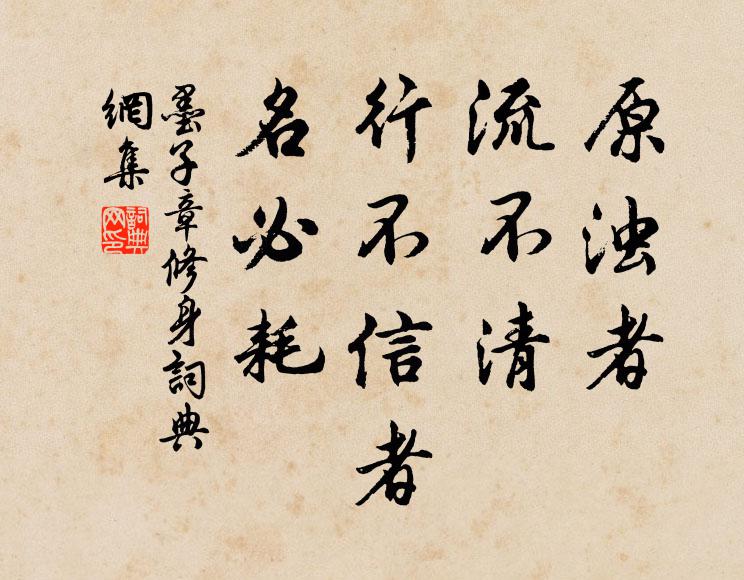 原浊者
流不清
行不信者
名必耗
墨子章修身詞典
網集
詞典
网印